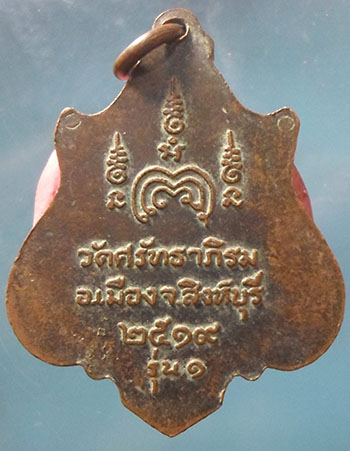 วัดศรัทธาภิรม
อ.เมือง จ.สิงห์บุรี
๒๕๑๙
รุ่น ๑